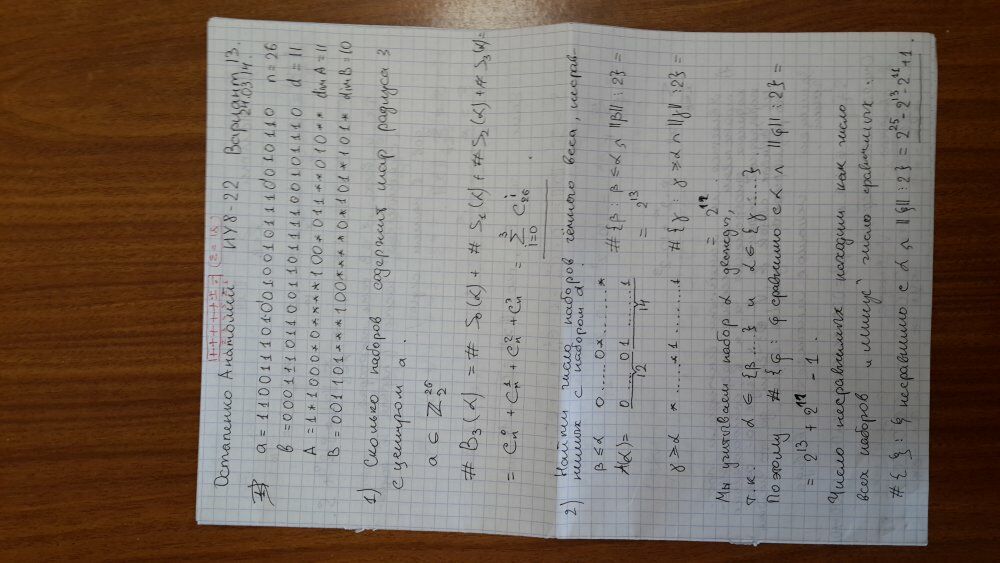 Остапенко Анатолий. ИУ8-22 Вариант 13.
24.03.14.
a = 11001110100100101110010110 n = 26
b = 00011101100110111110101110 d = 11
A = 1*1000*0****100*011**010** dim A = 11
B = 001101***100****0*101*101* dim B = 10
1) Сколько наборов содержит шар радиуса 3
с центром a.
a ∈ ℤ₂²⁶
# B₃(α) = # S₀(α) + # S₁(α) + # S₂(α) + # S₃(α) =
= Cₙ⁰ + Cₙ¹ + Cₙ² + Cₙ³ = Σ³ᵢ₌₀ C₂₆ⁱ .
2) Найти число наборов чётного веса, несрав-
нимых с набором a.
β ≤ α 0 ...... 0* ........ * # {β : β ≤ α ∩ ||β|| ⋮ 2} =
A(α) = 0 ...... 0 1 ........ 1 = 2¹³
12 14
γ ≥ α * ...... *1 ........ 1 # {γ : γ ≥ α ∩ ||γ|| ⋮ 2} =
= 2¹¹
Мы учитываем набор α дважды,
т.к. α ∈ {β ......} и α ∈ {γ ......}
Поэтому # {φ : φ сравнимо с α ∩ ||φ|| ⋮ 2} =
= 2¹³ + 2¹¹ - 1 .
Число несравнимых находим как число
всех наборов „минус“ число сравнимых :
# {ξ : ξ несравнимо с α ∩ ||ξ|| ⋮ 2} = 2²⁵ - 2¹³ - 2¹¹ + 1 .